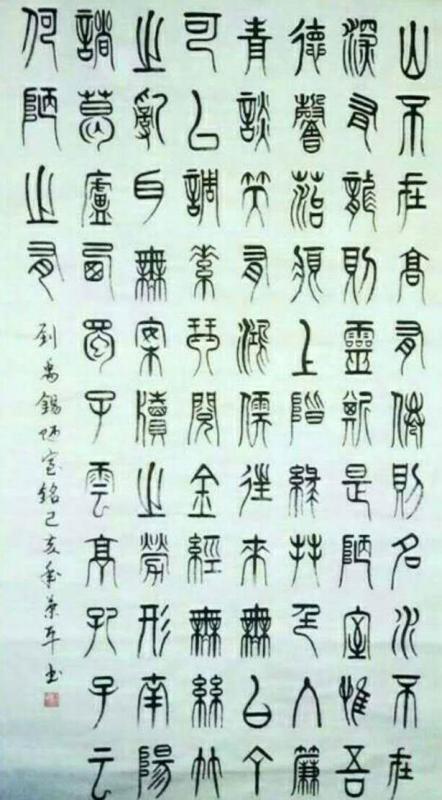 山不在高有仙則名水不在
深有龍則靈斯是陋室惟吾
德馨苔痕上階綠艸色入簾
青談笑有鴻儒往來無白丁
可以調素琴閱金經無絲竹
之亂耳無案牘之勞形南陽
諸葛廬西蜀子雲亭孔子云
何陋之有
刘禹錫陋室銘己亥年景平书